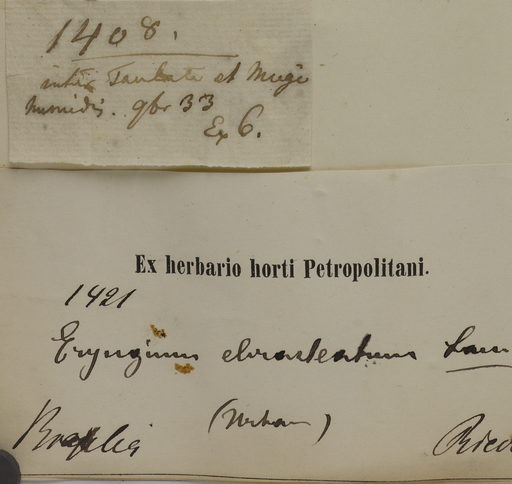 1408.
inter Taubate et Mugi
humidis. 9br 33
Ex 6.
Ex herbario horti Petropolitani.
1421
Eryngium ebracteatum Lam
(Urban)
Brasilia Ried